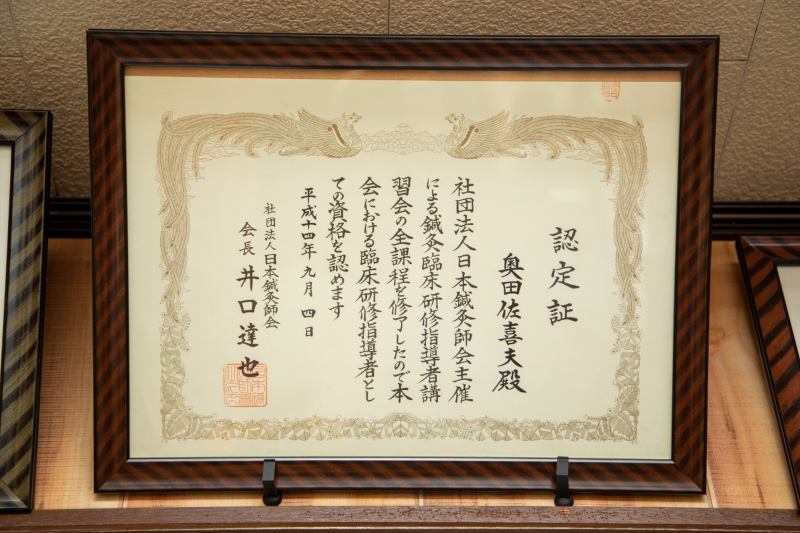 認定証
奥田佐喜夫殿
社団法人日本鍼灸師会主催
による鍼灸臨床研修指導者講
習会の全課程を修了したので本
会における臨床研修指導者とし
ての資格を認めます
平成十四年九月四日
社団法人日本鍼灸師会
会長 井口達也